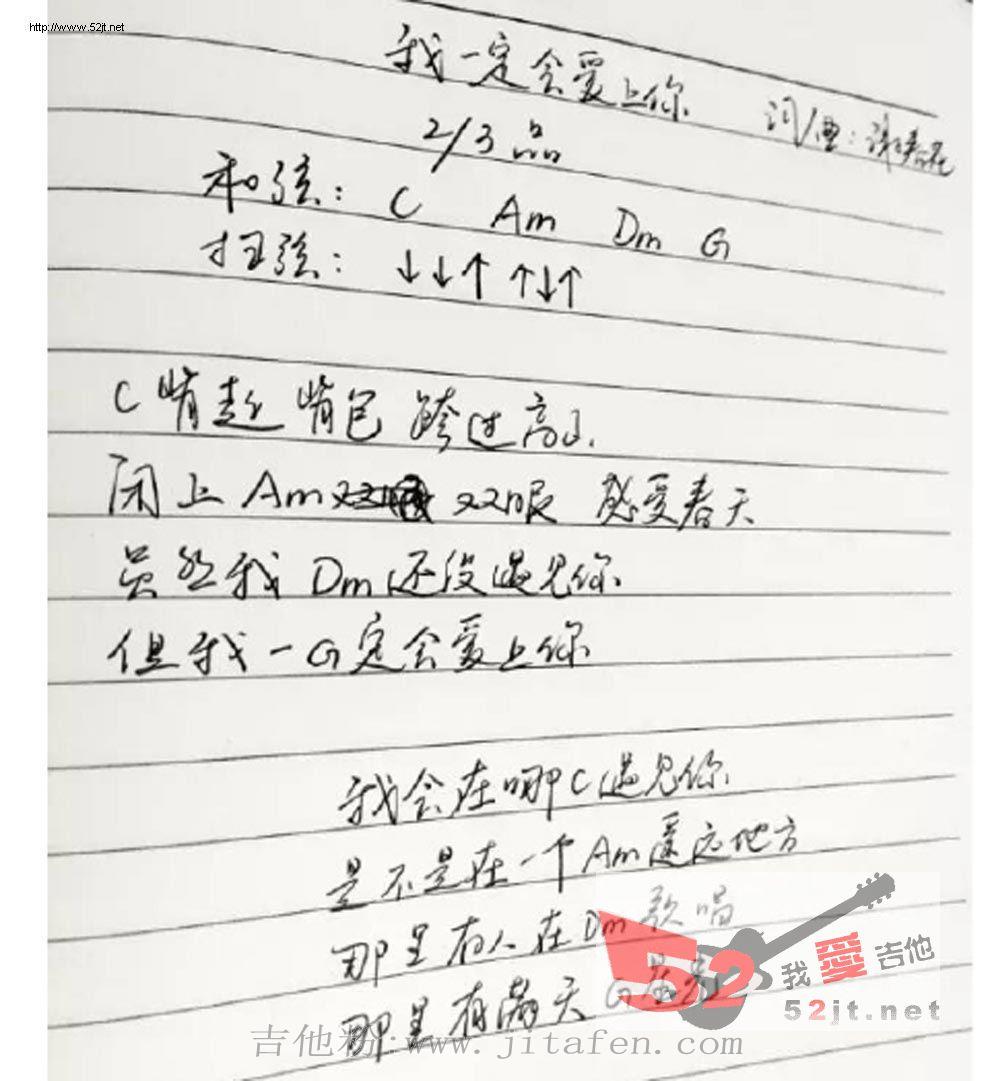 http://www.52jt.net
我一定会爱上你
词/曲：谢春花
2/3品
和弦： C Am Dm G
扫弦： ↓↓↑ ↑↓↑
C 背起 背包 跨过高山
闭上 Am 双眼 感受春天
虽然我 Dm 还没遇见你
但我一G定会爱上你
我会在哪C遇见你
是不是在一个Am遥远地方
那里有人在Dm歌唱
那里有满天G
52 我愛吉他
52jt.net
吉他粉:www.jitafen.com